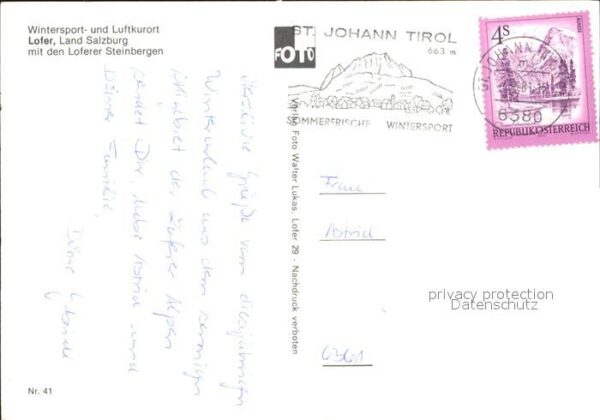 Wintersport- und Luftkurort
Lofer, Land Salzburg
mit den Loferer Steinbergen
Herzliche Grüße vom diesjährigen
Winterurlaub aus dem sonnigen
Skigebiet der Loferer Alpen
sendet Dir, liebe Astrid und
Deiner Familie,
Deine
Nr. 41
FOTO
Verlag Foto Walter Lukas, Lofer 29 - Nachdruck verboten
ST. JOHANN TIROL
663 m
SOMMERFRISCHE WINTERSPORT
4s
ST. JOHANN
6380
REPUBLIK ÖSTERREICH
Frau
Astrid
6361
privacy protection
Datenschutz